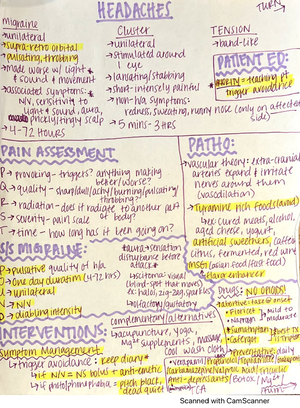 HEADACHES
TURN
Migraine
- unilateral
- supra-retro orbital
- pulsating, throbbing
- made worse w/ light
& sound & movement
- associated symptoms:
N/V, sensitivity to
light & sound, aura,
prickly/tingly scalp
- 4-72 HOURS
Cluster
- unilateral
- stimulated around
eye
- lansating/stabbing
- short-intensely painful
- non-h/a symptoms:
redness, sweating, runny nose (only on affected
side)
- 5 mins-3HRS
TENSION
- band-like
PATIENT ED:
teaching pt
trigger avoidance
PAIN ASSESSMENT
P - provoking - triggers? anything making
better/worse?
Q - quality - sharp/dull/achy/burning/pulsating/
throbbing?
R - radiation - does it radiate to another part
of body?
S - severity - pain scale
T - time - how long has it been going on?
S/S MIGRAINE:
P - pulsative quality of h/a
O - one day duration (4-72 hrs)
U - unilateral
N - N/V
D - disabling intensity
aura → sensation
disturbance before
attack
visual
(blind-spot that moves)
ex: halos, zig-zag, sparkles
olfactory/gustatory
INTERVENTIONS:
Symptom Management
- trigger avoidance: keep diary
- if N/V = NS bolus + anti-emetic
- if photo/phonophobia = pitch black,
dead quiet
complementary/alternatives
acupuncture, yoga,
Mg²⁺ supplements, massage,
cool wash cloth
PATHO:
- vascular theory: extra-cranial
arteries expand & irritate
nerves around them
(vasodilation)
- Tyramine rich foods (avoid)
ex: cured meats, alcohol,
aged cheese, yogurt,
artificial sweeteners, caffeine
citrus, fermented, red wine
MSG (asian food/fast food)
flavor enhancer
DRUGS: NO opioids!
abortive: take @ onset
Fioricet
Midrin
mild to
moderate
Sumatriptan
Cafergot
Preventive: daily
verapamil/Propranolol/Topiramate
Carbamazepine/valproic Acid/Tricyclic
Anti-depressants/BOTOX/Mg²⁺
CA
TURN
Scanned with CamScanner